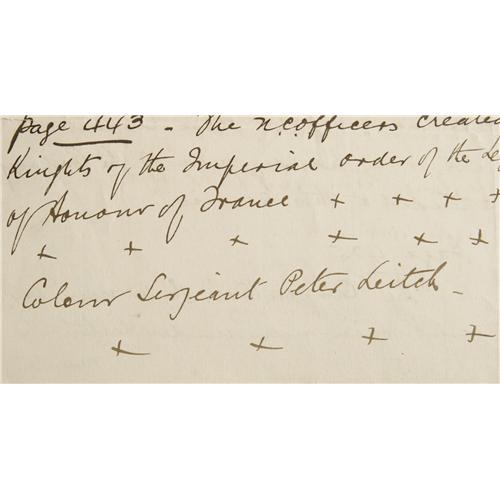 page 443 - The n.c.officers created
Knights of the Imperial order of the Le
of Honour of France + + + +
+ + + + + +
Colour Serjeant Peter Leitch -
+ + + +